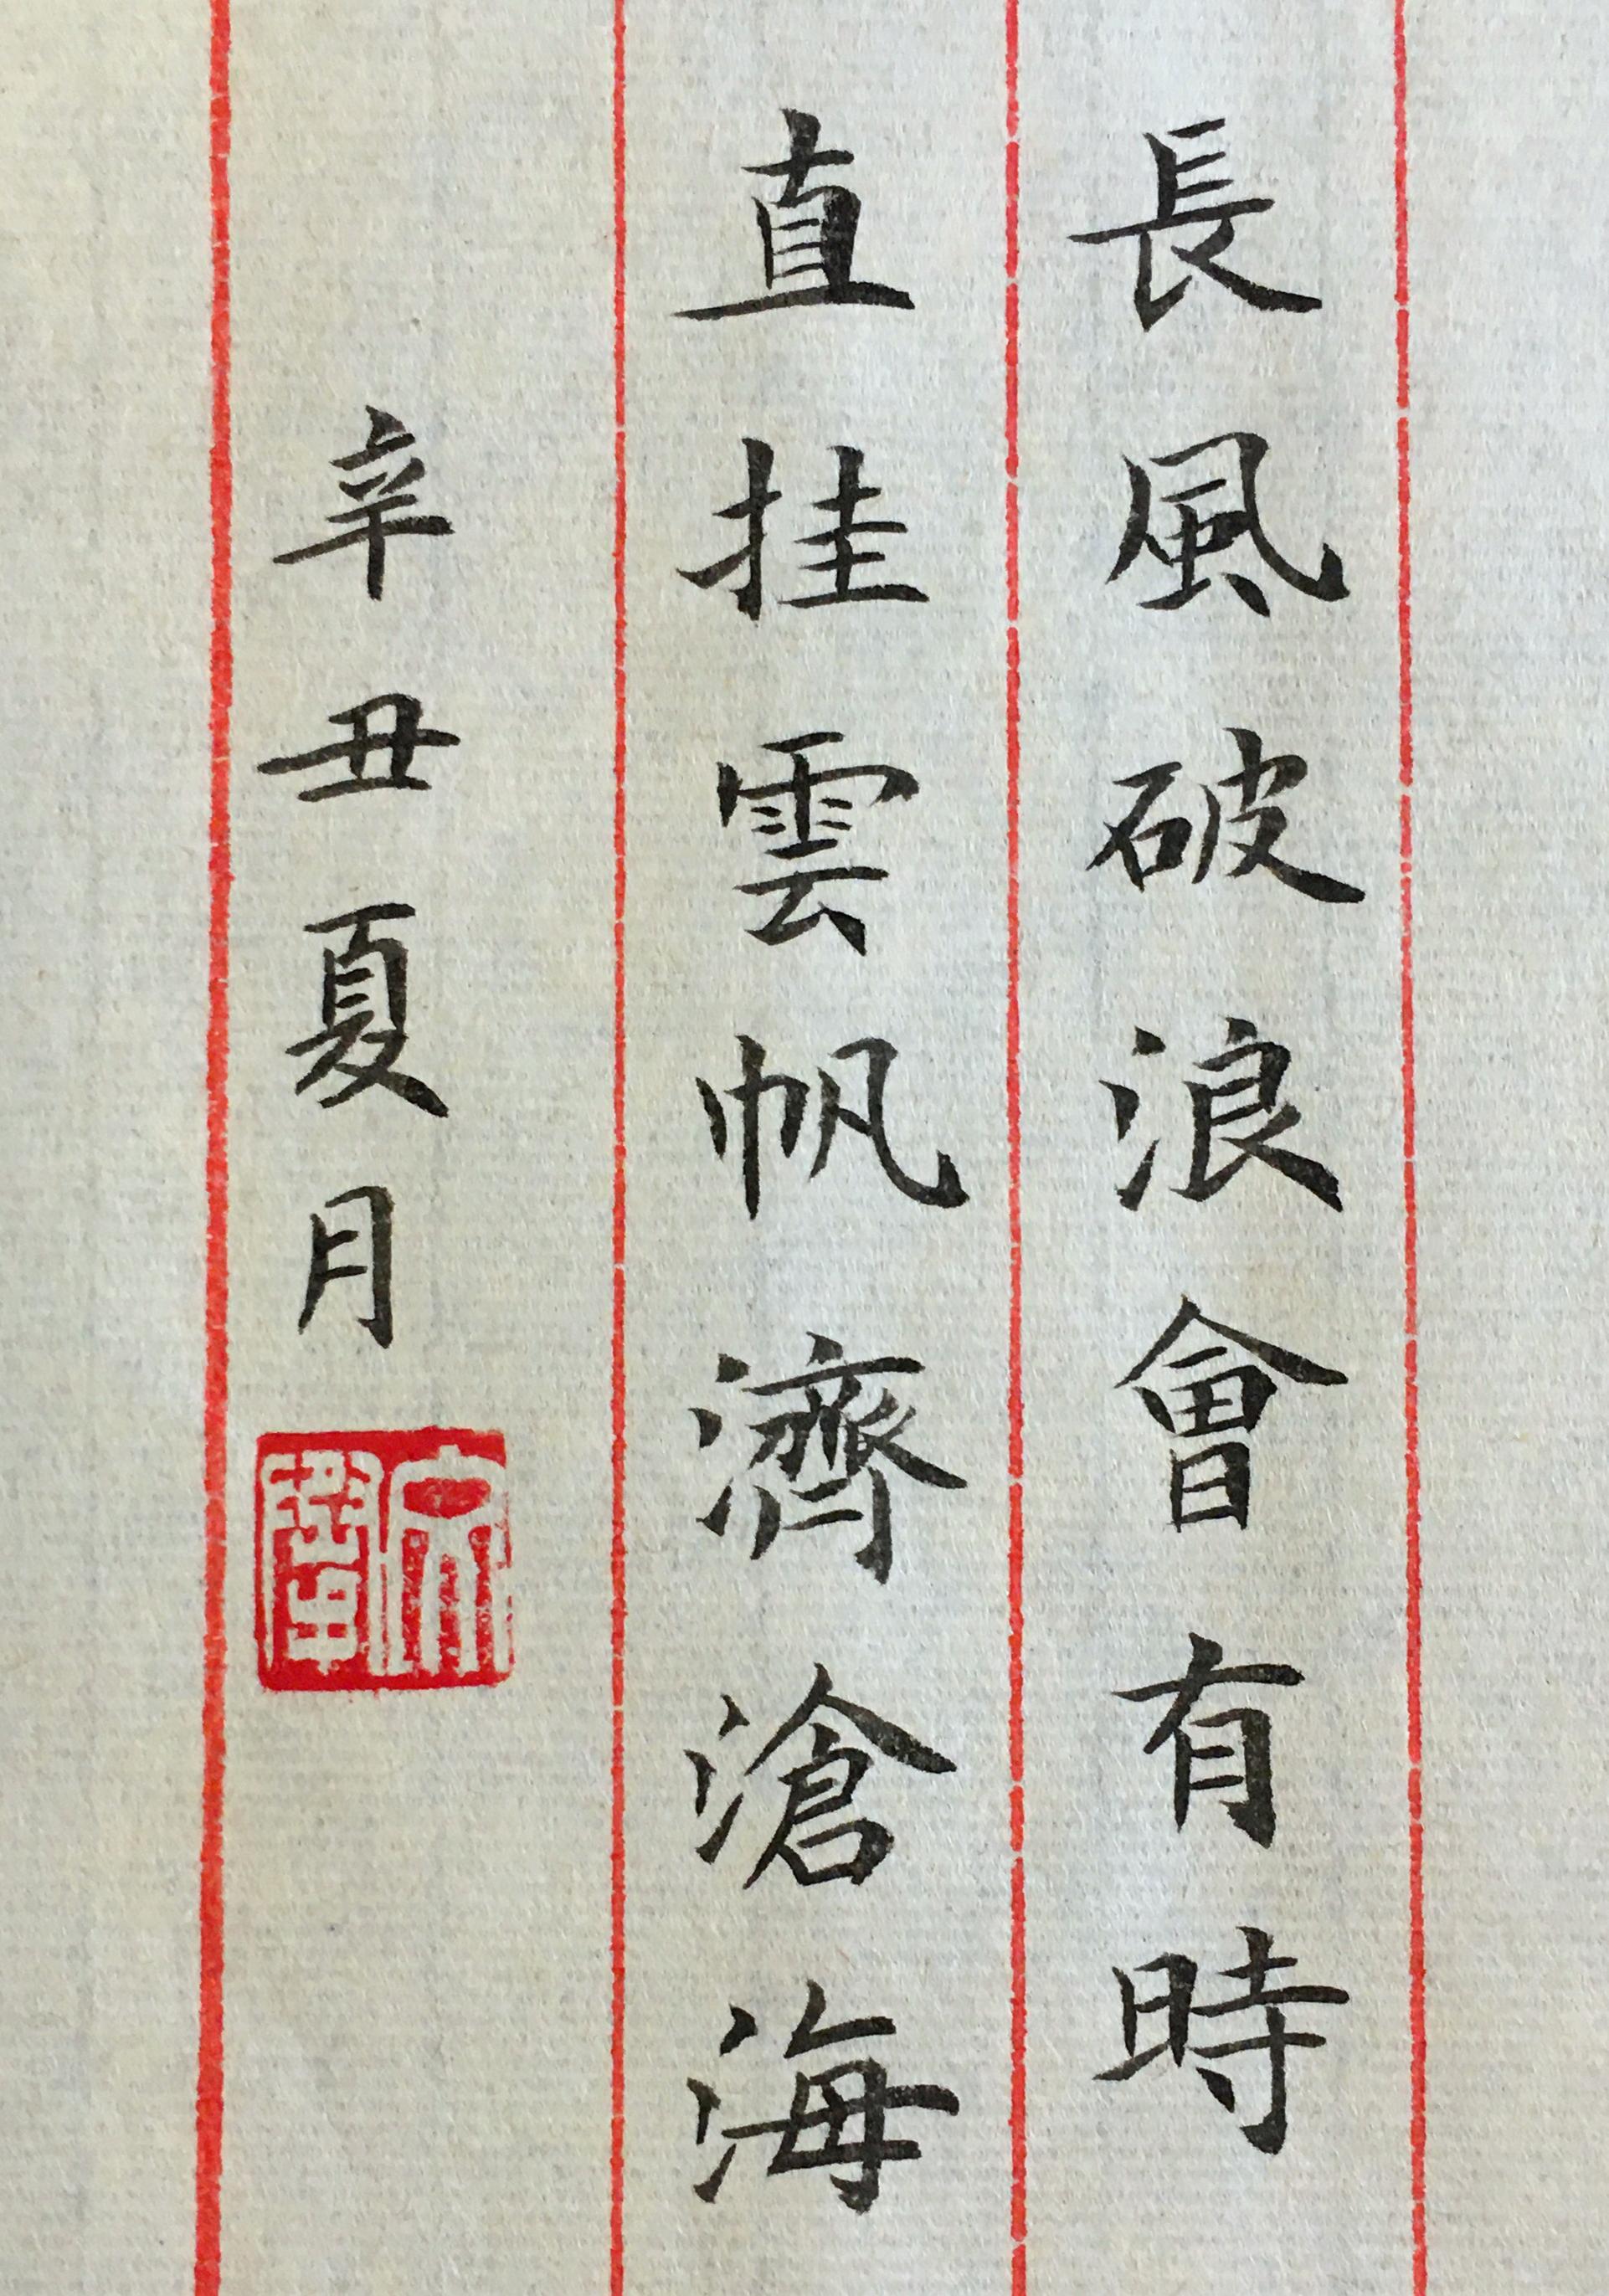 長風破浪會有時
直挂雲帆濟滄海
辛丑夏月